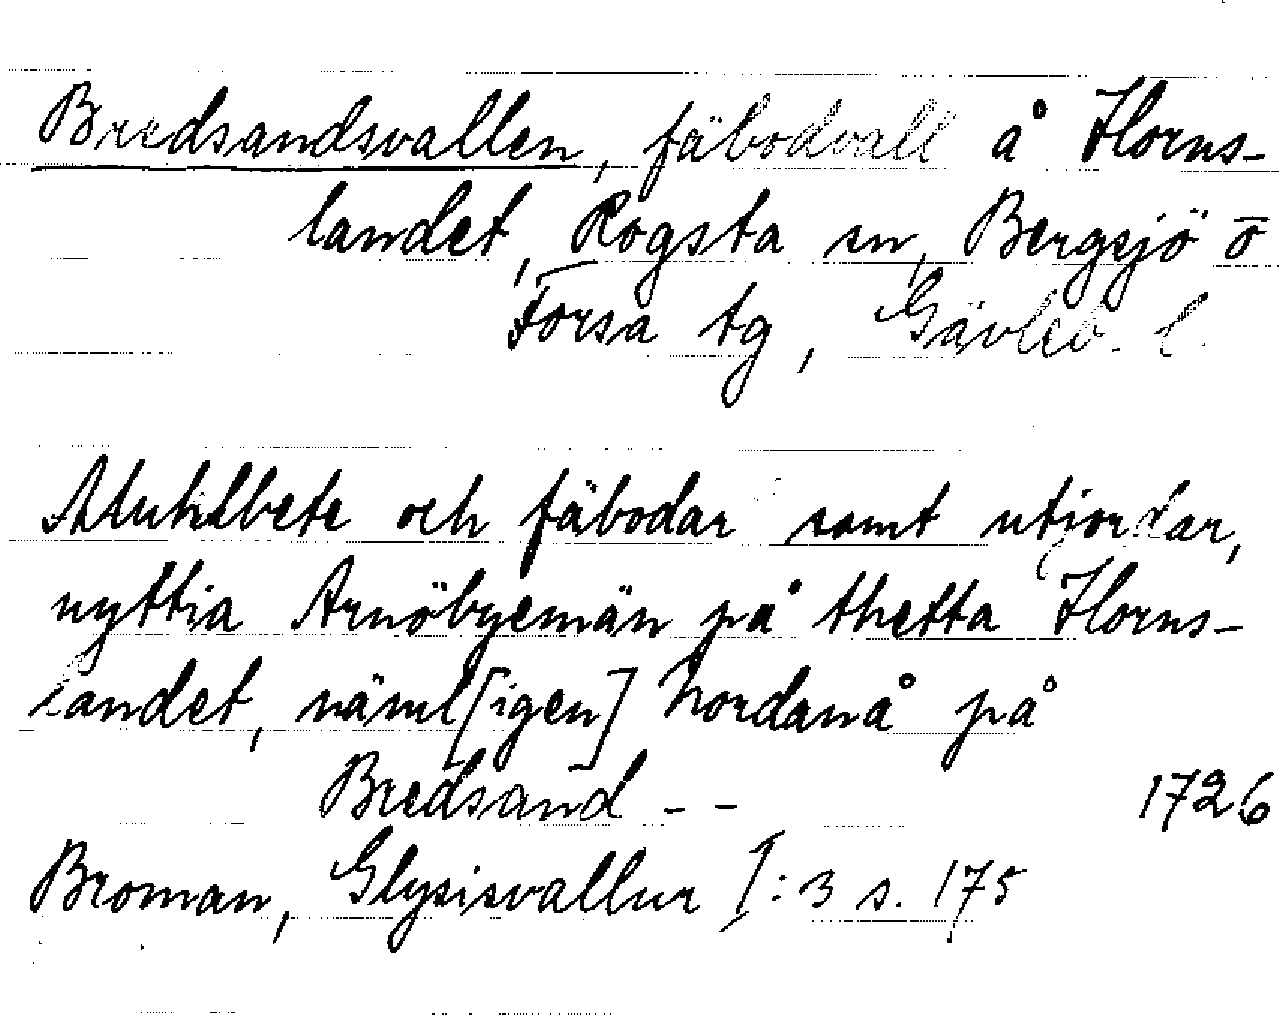 Bredsandsvallen, fäbodvall å Horns-
landet, Rogsta sn, Bergsjö o
Forsa tg, Gävleb. l.
Muhlbete och fäbodar samt utjordar,
nyttia Arnöbyemän på thetta Horns-
landet, näml[igen] Nordanå på
Bredsand - - 1726
Broman, Glysisvallur I:3 s. 175